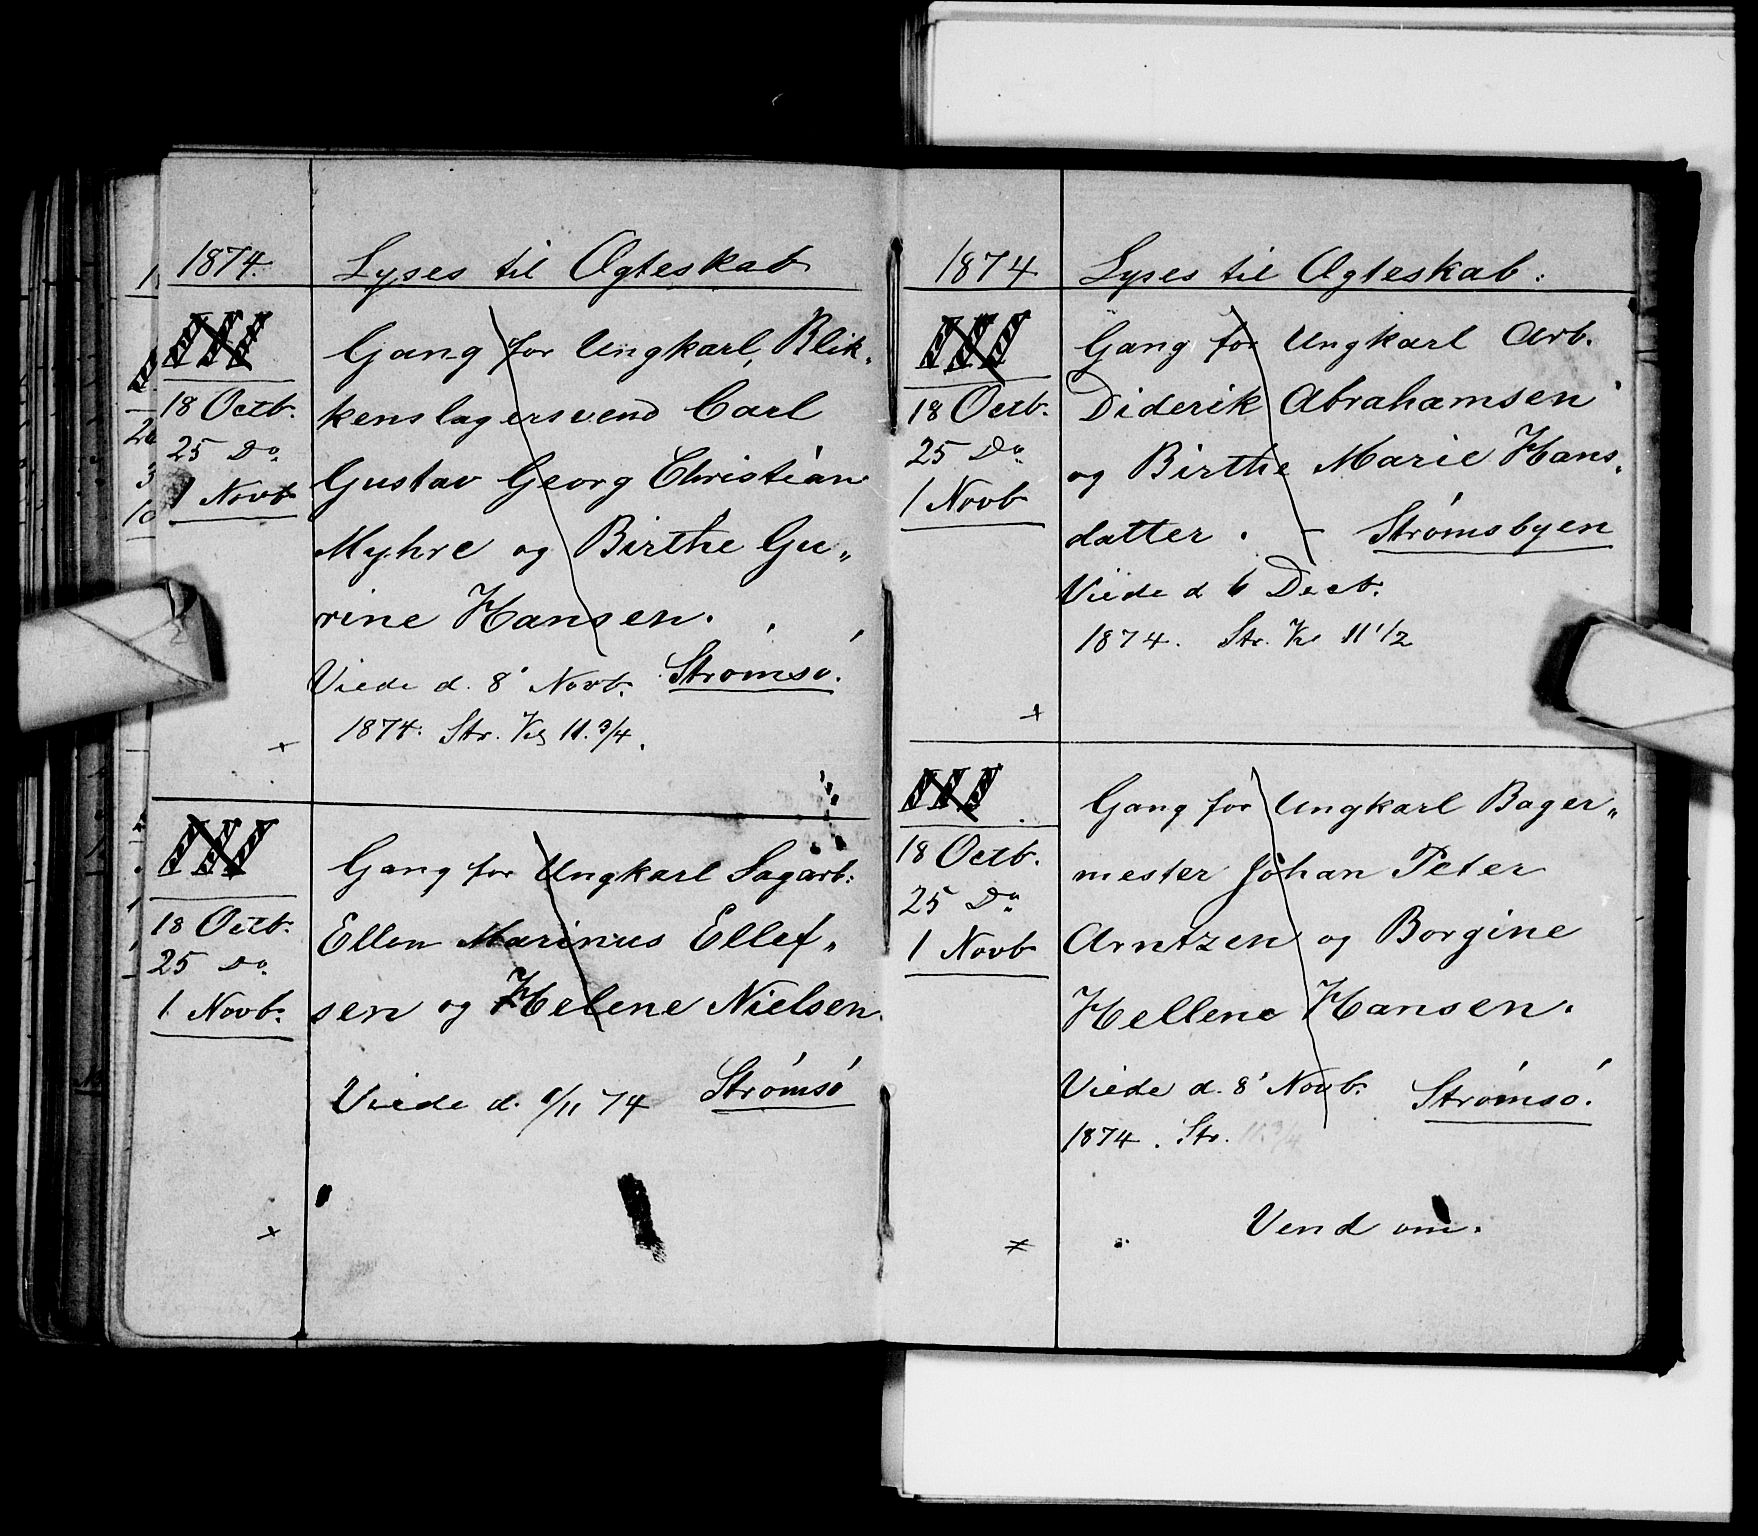 1874. Lyses til Ægteskab
III
18 Octb.
25 Do.
1 Novb.
Gang for Ungkarl, Blik-
kenslagersvend Carl
Gustav Georg Christian
Myhre og Birthe Gu„
rine Hansen.
Viede d. 8' Novb. Strømsø.
1874. Str. Kl 11.3/4.
+
III
18 Octb.
25 Do.
1 Novb.
Gang for Ungkarl Sagarb:
Ellen Marinus Ellef„
sen og Helene Nielsen.
Strømsø
Viede d. 8/11 74
+
1874 Lyses til Ægteskab:
III
18 Octb.
25 Do.
1 Novb
Gang for Ungkarl Arb.
Diderik Abrahamsen
og Birthe Marie Hans„
datter. – Strømsbyen
Viede d 6 Decb.
1874. Str. Kl 11 1/2
+
III
18 Octb.
25 Do.
1 Novb
Gang for Ungkarl Bager„
mester Johan Peter
Arntzen og Borgine
Hellene Hansen.
Viede d. 8' Novb. Strømsø.
1874. Str. 11 3/4
Vend om.
+